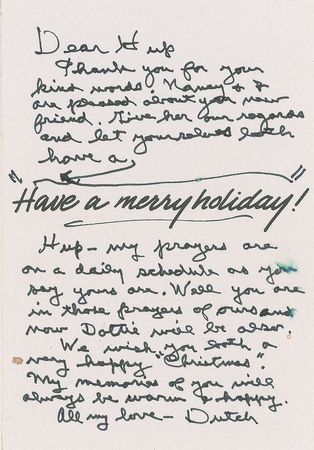 Dear Hup
Thank you for your
kind words. Nancy & I
are pleased about your new
friend. Give her our regards
and let yourselves both
have a,
"Have a merry holiday!"
Hup — my prayers are
on a daily schedule as you
say yours are. Well you are
in those prayers of ours and
now Dottie will be also.
We wish you both a
very happy "Christmas".
My memories of you will
always be warm & happy.
All my love — Dutch